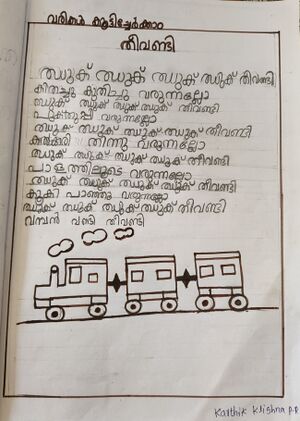 വരികൾ കൂട്ടിച്ചേർക്കാം
തീവണ്ടി
ഝുക് ഝുക് ഝുക് ഝുക് തീവണ്ടി
കിതച്ചു കുതിച്ചു വരുന്നല്ലോ
ഝുക് ഝുക് ഝുക് ഝുക് തീവണ്ടി
പുകതുപ്പി വരുന്നല്ലോ
ഝുക് ഝുക് ഝുക് ഝുക് തീവണ്ടി
കൽക്കരി തിന്നു വരുന്നല്ലോ
ഝുക് ഝുക് ഝുക് ഝുക് തീവണ്ടി
പാളത്തിലൂടെ വരുന്നല്ലോ
ഝുക് ഝുക് ഝുക് ഝുക് തീവണ്ടി
കൂകി പാഞ്ഞു വരുന്നല്ലോ
ഝുക് ഝുക് ഝുക് ഝുക് തീവണ്ടി
വമ്പൻ വണ്ടി തീവണ്ടി
Karthik Krishna P.R